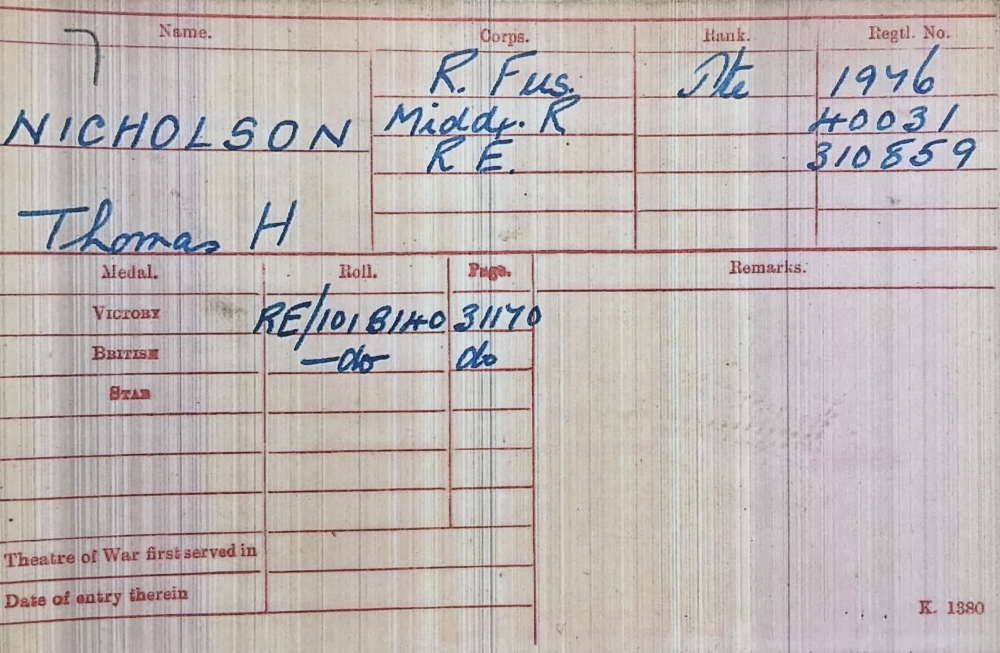 Name. Corps. Rank. Regtl. No.
R. Fus. Pte 1946
NICHOLSON Middx. R 40031
R E. 310859
Thomas H
Medal. Roll. Page. Remarks.
VICTORY RE/101B140 31170
BRITISH —do— do
STAR
Theatre of War first served in
Date of entry therein
K. 1380